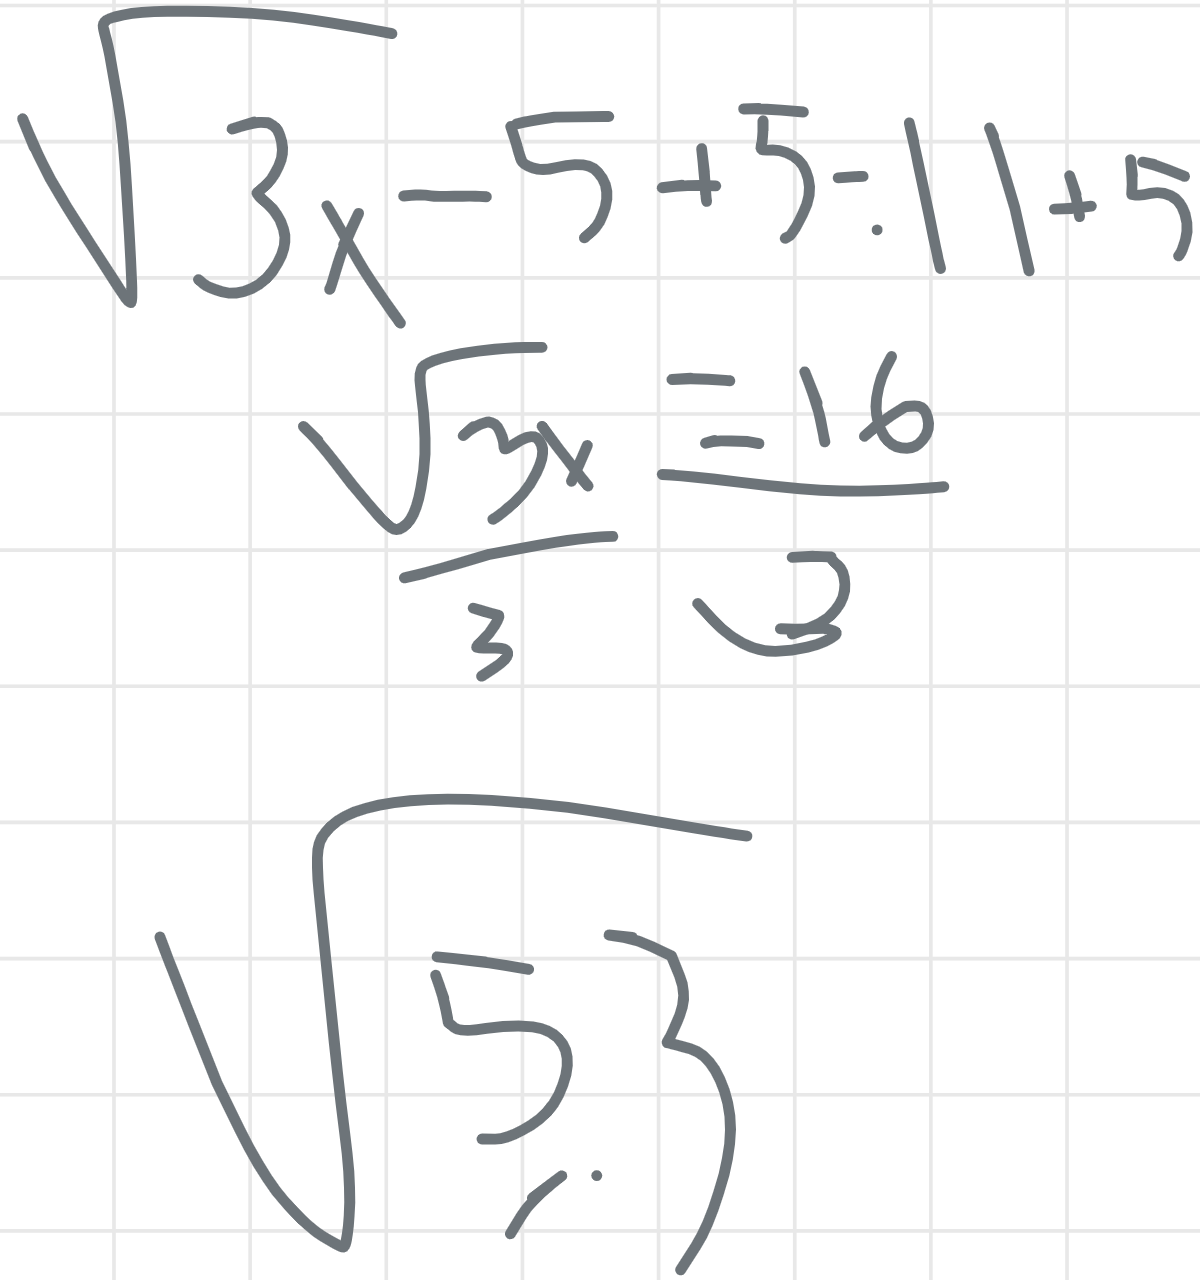 √3x - 5 + 5 = 11 + 5
√3x = 16
3 3
√5.3